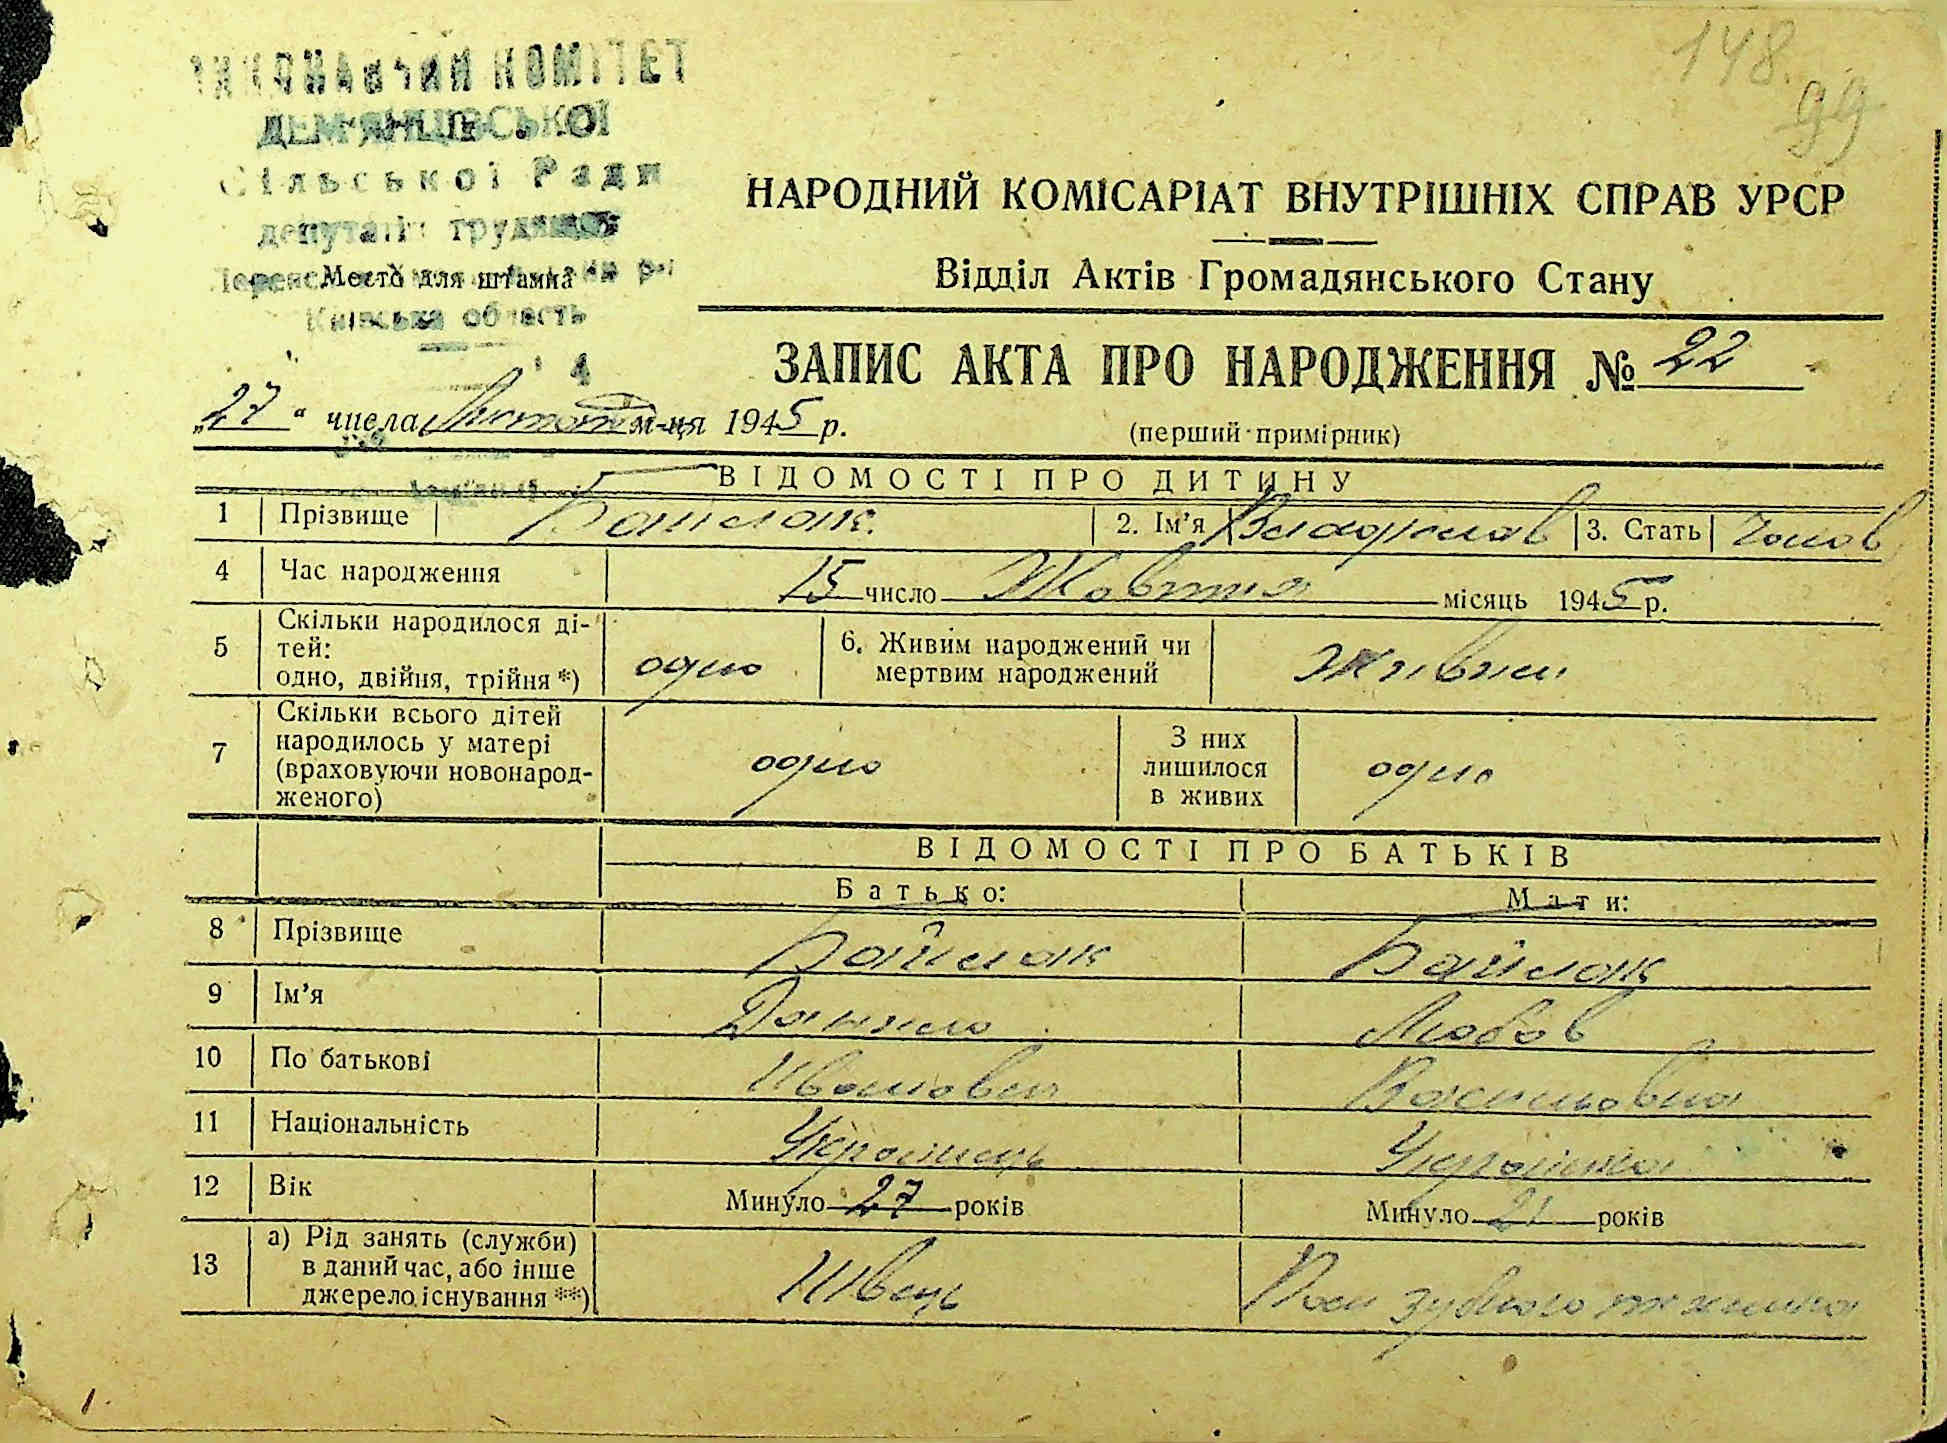 148.
99
ВИКОНАВЧИЙ КОМІТЕТ
ДЕМ'ЯНЦІВСЬКОЇ
Сільської Ради
депутатів трудящих
Место для штампа
Київська область
НАРОДНИЙ КОМІСАРІАТ ВНУТРІШНІХ СПРАВ УРСР
Відділ Актів Громадянського Стану
ЗАПИС АКТА ПРО НАРОДЖЕННЯ № 22
„27“ числа Листопад м-ця 1945 р.
(перший примірник)
ВІДОМОСТІ ПРО ДИТИНУ
1 Прізвище Байлак 2. Ім’я Владислав 3. Стать Чолов
4 Час народження 15 число Жовтня місяць 1945 р.
5 Скільки народилося ді-
тей:
одно, двійня, трійня *) одно 6. Живим народжений чи
мертвим народжений Живим
7 Скільки всього дітей
народилось у матері
(враховуючи новонарод-
женого) одно З них
лишилося
в живих одно
ВІДОМОСТІ ПРО БАТЬКІВ
Батько: Мати:
8 Прізвище Байлак Байлак
9 Ім’я Данило Любов
10 По батькові Иванович Васильовна
11 Національність Українець Українка
12 Вік Минуло 27 років Минуло 21 років
13 а) Рід занять (служби)
в даний час, або інше
джерело існування **) Швець зубного техника